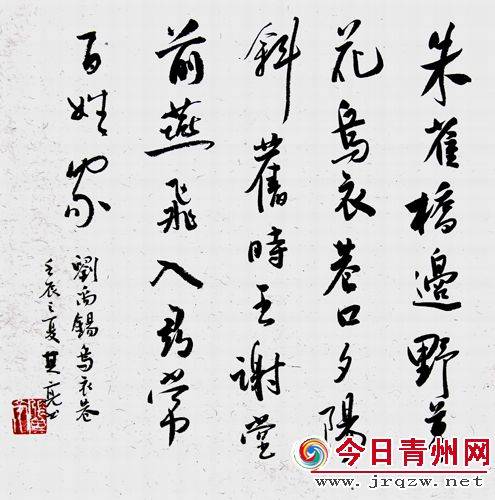 朱雀橋邊野草
花烏衣巷口夕陽
斜舊時王謝堂
前燕飛入尋常
百姓家
劉禹錫烏衣巷
壬辰之夏其亮書
今日青州网
www.jrqzw.net